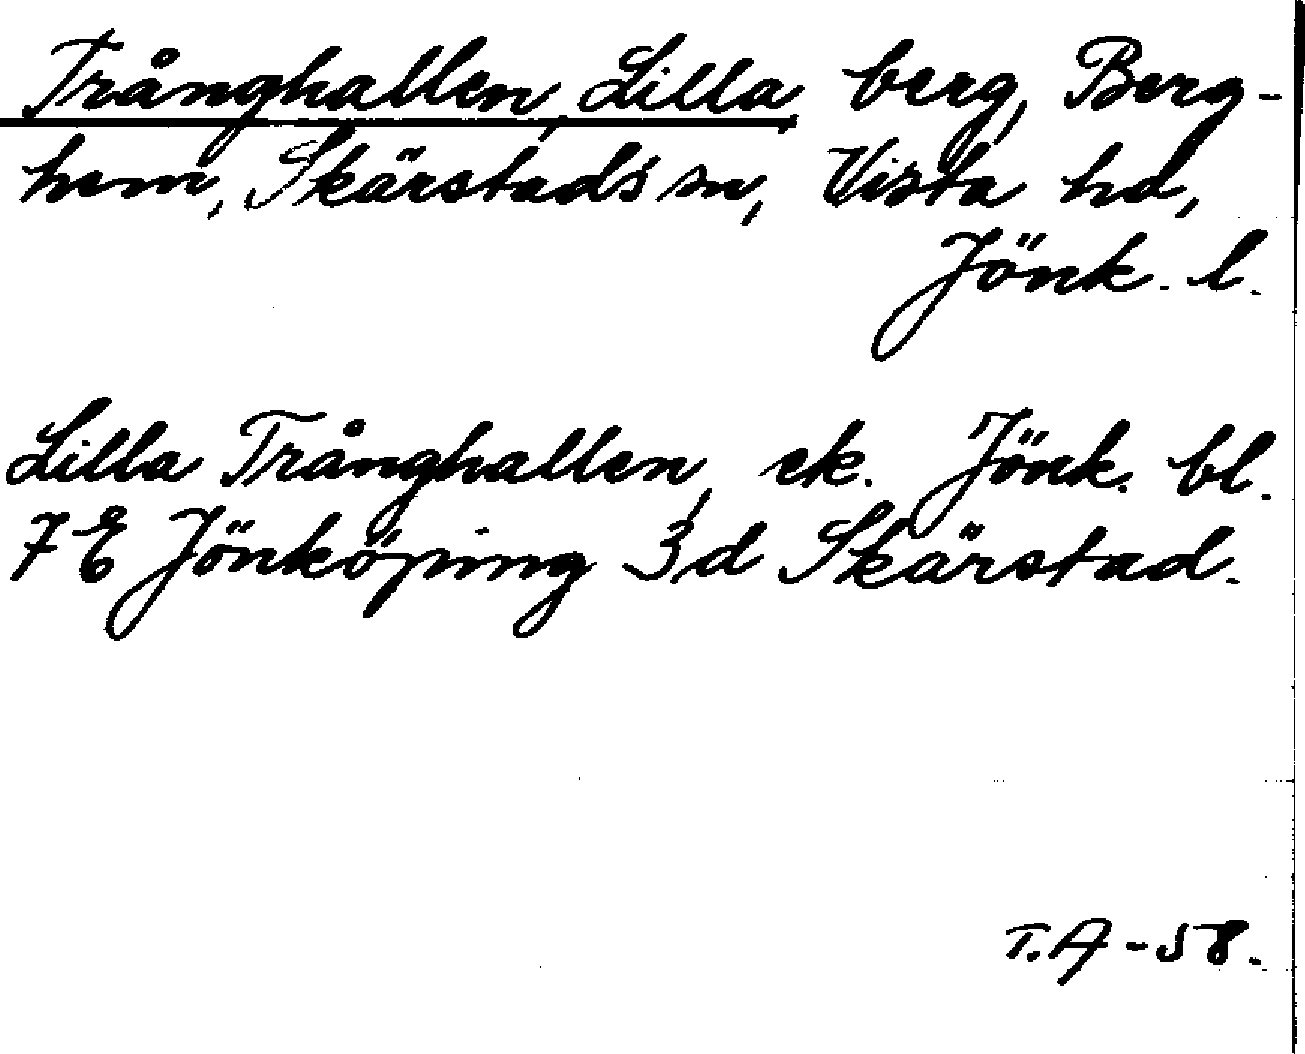 Trånghallen, Lilla, berg, Berg-
hem, Skärstads sn, Vista hd,
Jönk. l.
Lilla Trånghallen, ek. Jönk. bl.
7E Jönköping 3d Skärstad.
T.A-58.